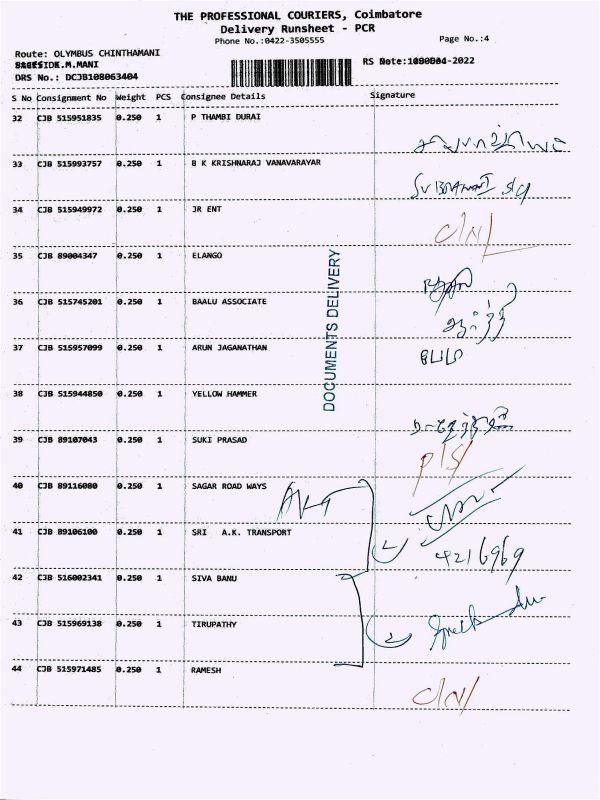 THE PROFESSIONAL COURIERS, Coimbatore
Delivery Runsheet - PCR
Phone No.:0422-3505555
Page No.:4
Route: OLYMBUS CHINTHAMANI
DRS No.: DCJB108063404
S No Consignment No Weight PCS Consignee Details Signature
32 CJB 515951835 0.250 1 P THAMBI DURAI
33 CJB 515993757 0.250 1 B K KRISHNARAJ VANAVARAYAR
34 CJB 515949972 0.250 1 JR ENT
C/N/
35 CJB 89004347 0.250 1 ELANGO
36 CJB 515745201 0.250 1 BAALU ASSOCIATE
37 CJB 515957099 0.250 1 ARUN JAGANATHAN
38 CJB 515944850 0.250 1 YELLOW HAMMER
39 CJB 89107043 0.250 1 SUKI PRASAD
P/S/
40 CJB 89116080 0.250 1 SAGAR ROAD WAYS
41 CJB 89106100 0.250 1 SRI A.K. TRANSPORT
4216969
42 CJB 516002341 0.250 1 SIVA BANU
43 CJB 515969138 0.250 1 TIRUPATHY
2
44 CJB 515971485 0.250 1 RAMESH
C/N/
DOCUMENTS DELIVERY